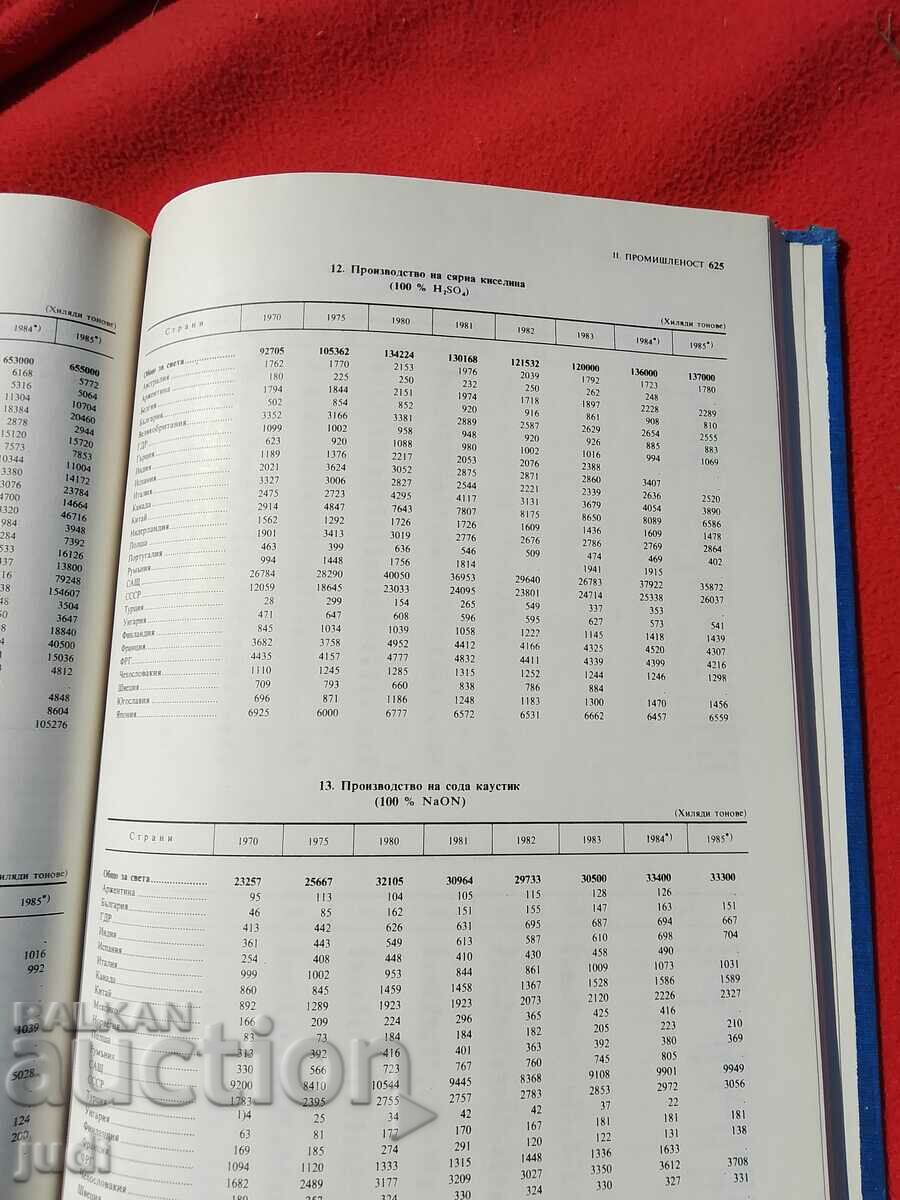 (Хиляди тонове)
1984*) 1985*)
653000 655000
6168 5772
5316 5064
11304 10704
18384 20460
2878 2944
15120 15720
7573 7853
10344 11004
14172
23784
14664
46716
3948
7392
16126
13800
79248
154607
3504
3647
18840
40500
15036
4812
4848
8604
105276
1985*)
1016
992
1039
5028
124
200
II. ПРОМИШЛЕНОСТ 625
12. Производство на сярна киселина
(100 % H₂SO₄)
(Хиляди тонове)
Страни 1970 1975 1980 1981 1982 1983 1984*) 1985*)
Общо за света 92705 105362 134224 130168 121532 120000 136000 137000
Австралия 1762 1770 2153 1976 2039 1792 1723 1780
Аржентина 180 225 250 232 250 262 248 .
Белгия 1794 1844 2151 1974 1718 1897 2228 2289
България 502 854 852 920 916 861 908 810
Великобритания 3352 3166 3381 2889 2587 2629 2654 2555
ГДР 1099 1002 958 948 920 926 885 883
Гърция 623 920 1088 980 1002 1016 994 1069
Индия 1189 1376 2217 2053 2076 2388 . .
Испания 2021 3624 3052 2875 2871 2860 3407 .
Италия 3327 3006 2827 2544 2221 2339 2636 2520
Канада 2475 2723 4295 4117 3131 3679 4054 3890
Китай 2914 4847 7643 7807 8175 8650 8089 6586
Нидерландия 1562 1292 1726 1726 1609 1436 1609 1478
Полша 1901 3413 3019 2776 2676 2786 2769 2864
Португалия 463 399 636 546 509 474 469 402
Румъния 994 1448 1756 1814 . 1941 1915 .
САЩ 26784 28290 40050 36953 29640 26783 37922 35872
СССР 12059 18645 23033 24095 23801 24714 25338 26037
Турция 28 299 154 265 549 337 353 .
Унгария 471 647 608 596 595 627 573 541
Финландия 845 1034 1039 1058 1222 1145 1418 1439
Франция 3682 3758 4952 4412 4166 4325 4520 4307
ФРГ 4435 4157 4777 4832 4411 4339 4399 4216
Чехословакия 1110 1245 1285 1315 1252 1244 1246 1298
Швеция 709 793 660 838 786 884 . .
Югославия 696 871 1186 1248 1183 1300 1470 1456
Япония 6925 6000 6777 6572 6531 6662 6457 6559
13. Производство на сода каустик
(100 % NaOH)
(Хиляди тонове)
Страни 1970 1975 1980 1981 1982 1983 1984*) 1985*)
Общо за света 23257 25667 32105 30964 29733 30500 33400 33300
Аржентина 95 113 104 105 115 128 126 .
България 46 85 162 151 155 147 163 151
ГДР 413 442 626 631 695 687 694 667
Индия 361 443 549 613 587 610 698 704
Испания 254 408 448 410 430 458 490 .
Италия 999 1002 953 844 861 1009 1073 1031
Канада 860 845 1459 1458 1367 1528 1586 1589
Китай 892 1289 1923 1923 2073 2120 2226 2327
166 209 224 296 365 425 416 .
83 73 184 184 182 205 223 210
Полша 313 392 416 401 363 392 380 369
Румъния 330 566 723 767 760 745 805 .
САЩ 9200 8410 10544 9445 8368 9108 9901 9949
СССР 1783 2395 2755 2757 2783 2853 2972 3056
Турция 25 34 42 42 37 22 .
Унгария 63 81 177 170 167 181 181 181
Финландия 169 185 274 291 120 138
1094 1120 1333 1315 1448 1336 1633
ФРГ 1682 2489 3177 3209 3027 3350 3612 3708
Чехословакия 324 330 324 327 331
Швеция
BALKAN
auction
judi